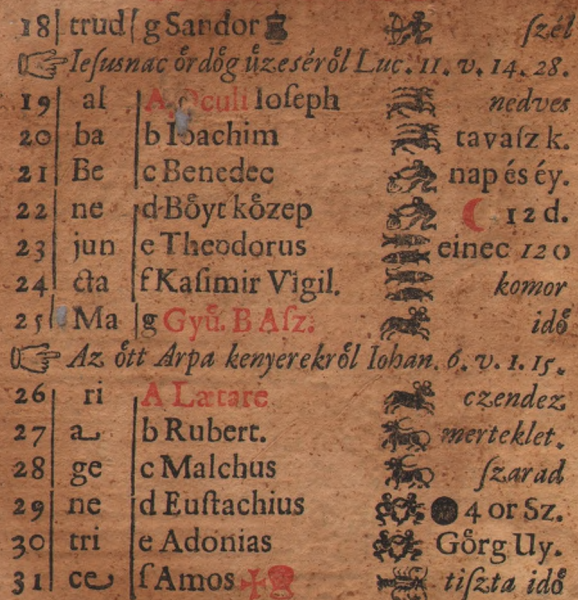 18 trud g Sandor ſzél
Ieſusnac oͤrdoͤg uͤzeséroͤl Luc. 11. v. 14. 28.
19 al A Oculi Ioſeph nedves
20 ba b Ioachim tavaſz k.
21 Be c Benedec nap és éy.
22 ne d Boͤyt koͤzep 12 d.
23 jun e Theodorus einec 120
24 cta f Kaſimir Vigil. komor
25 Ma g Gyuͤ. B Aſz. idoͤ
Az oͤtt Arpa kenyerekroͤl Iohan. 6. v. 1. 15.
26 ri A Lætare czendez
27 a b Rubert. merteklet.
28 ge c Malchus ſzarad
29 ne d Euſtachius 4 or Sz.
30 tri e Adonias Goͤrg Uy.
31 ce f Amos ✠ tiſzta idoͤ